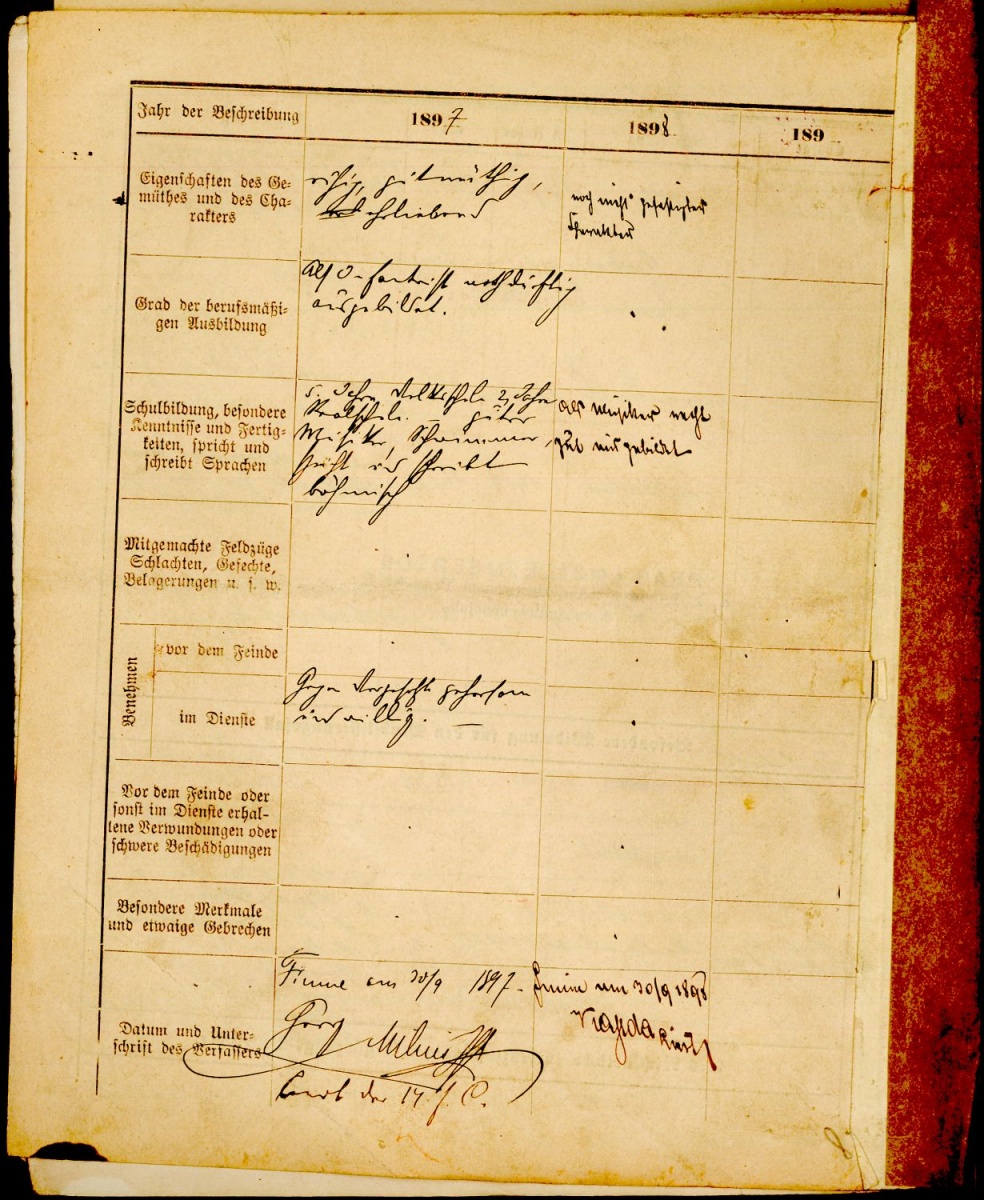 Jahr der Beschreibung 1897 1898 189
Eigenschaften des Ge-
müthes und des Cha-
rakters
ruhig, gutmüthig,
ehrliebend
noch nicht gefestigter
Charakter
Grad der berufsmäßi-
gen Ausbildung
Als Infanterist nothdürftig
ausgebildet.
Schulbildung, besondere
Kenntnisse und Fertig-
keiten, spricht und
schreibt Sprachen
5 Jahre Volksschule 2 Jahre
Realschule. guter
Musiker, Schwimmer,
spricht und schreibt
böhmisch
als Musiker recht
gut ausgebildet
Mitgemachte Feldzüge
Schlachten, Gefechte,
Belagerungen u. s. w.
Benehmen
vor dem Feinde
im Dienste
Gegen Vorgesetzte gehorsam
und willig. —
Vor dem Feinde oder
sonst im Dienste erhal-
tene Verwundungen oder
schwere Beschädigungen
Besondere Merkmale
und etwaige Gebrechen
Datum und Unter-
schrift des Verfassers
Fiume am 30/9 1897.
Georg
der 14. f. C.
Fiume am 30/9 1898
8